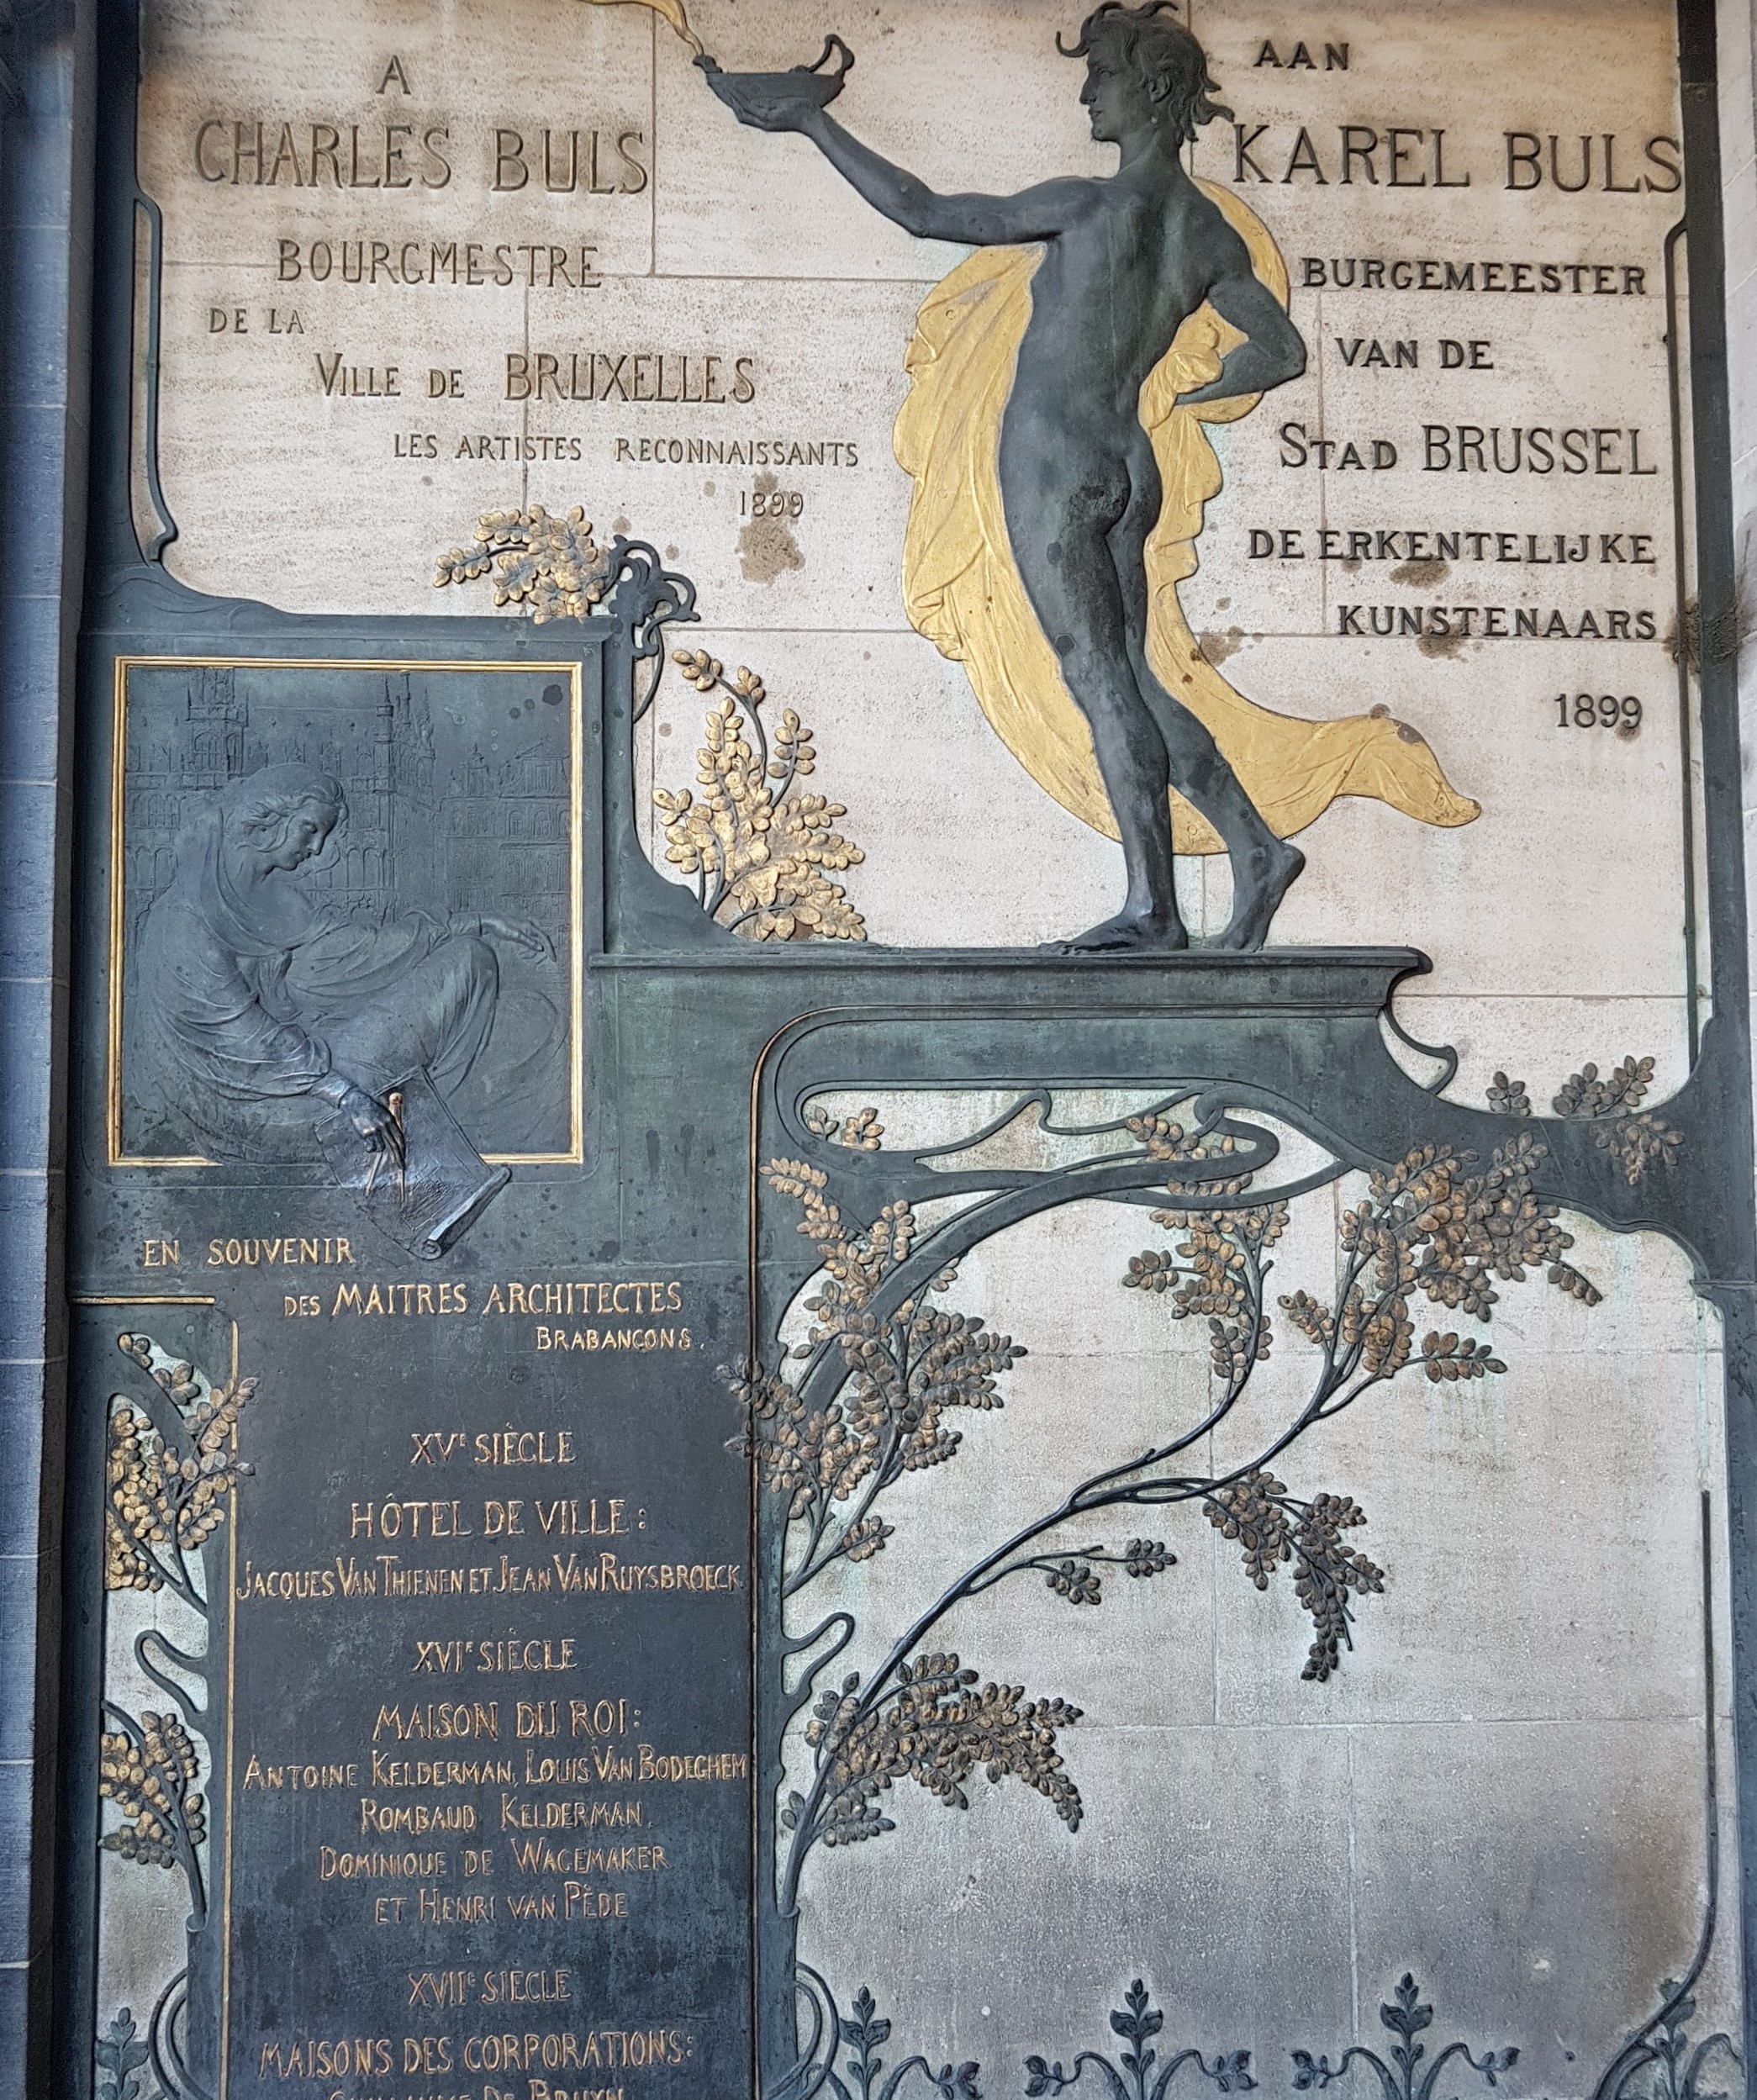 A
CHARLES BULS
BOURGMESTRE
DE LA
VILLE DE BRUXELLES
LES ARTISTES RECONNAISSANTS
1899
AAN
KAREL BULS
BURGEMEESTER
VAN DE
STAD BRUSSEL
DE ERKENTELIJKE
KUNSTENAARS
1899
EN SOUVENIR
DES MAITRES ARCHITECTES
BRABANÇONS.
XVe SIÈCLE
HÔTEL DE VILLE:
JACQUES VAN THIENEN ET JEAN VAN RUYSBROECK.
XVIe SIÈCLE
MAISON DU ROI:
ANTOINE KELDERMAN, LOUIS VAN BODEGHEM
ROMBAUD KELDERMAN,
DOMINIQUE DE WAGEMAKER
ET HENRI VAN PÈDE
XVIIe SIÈCLE
MAISONS DES CORPORATIONS:
DE BRUYN